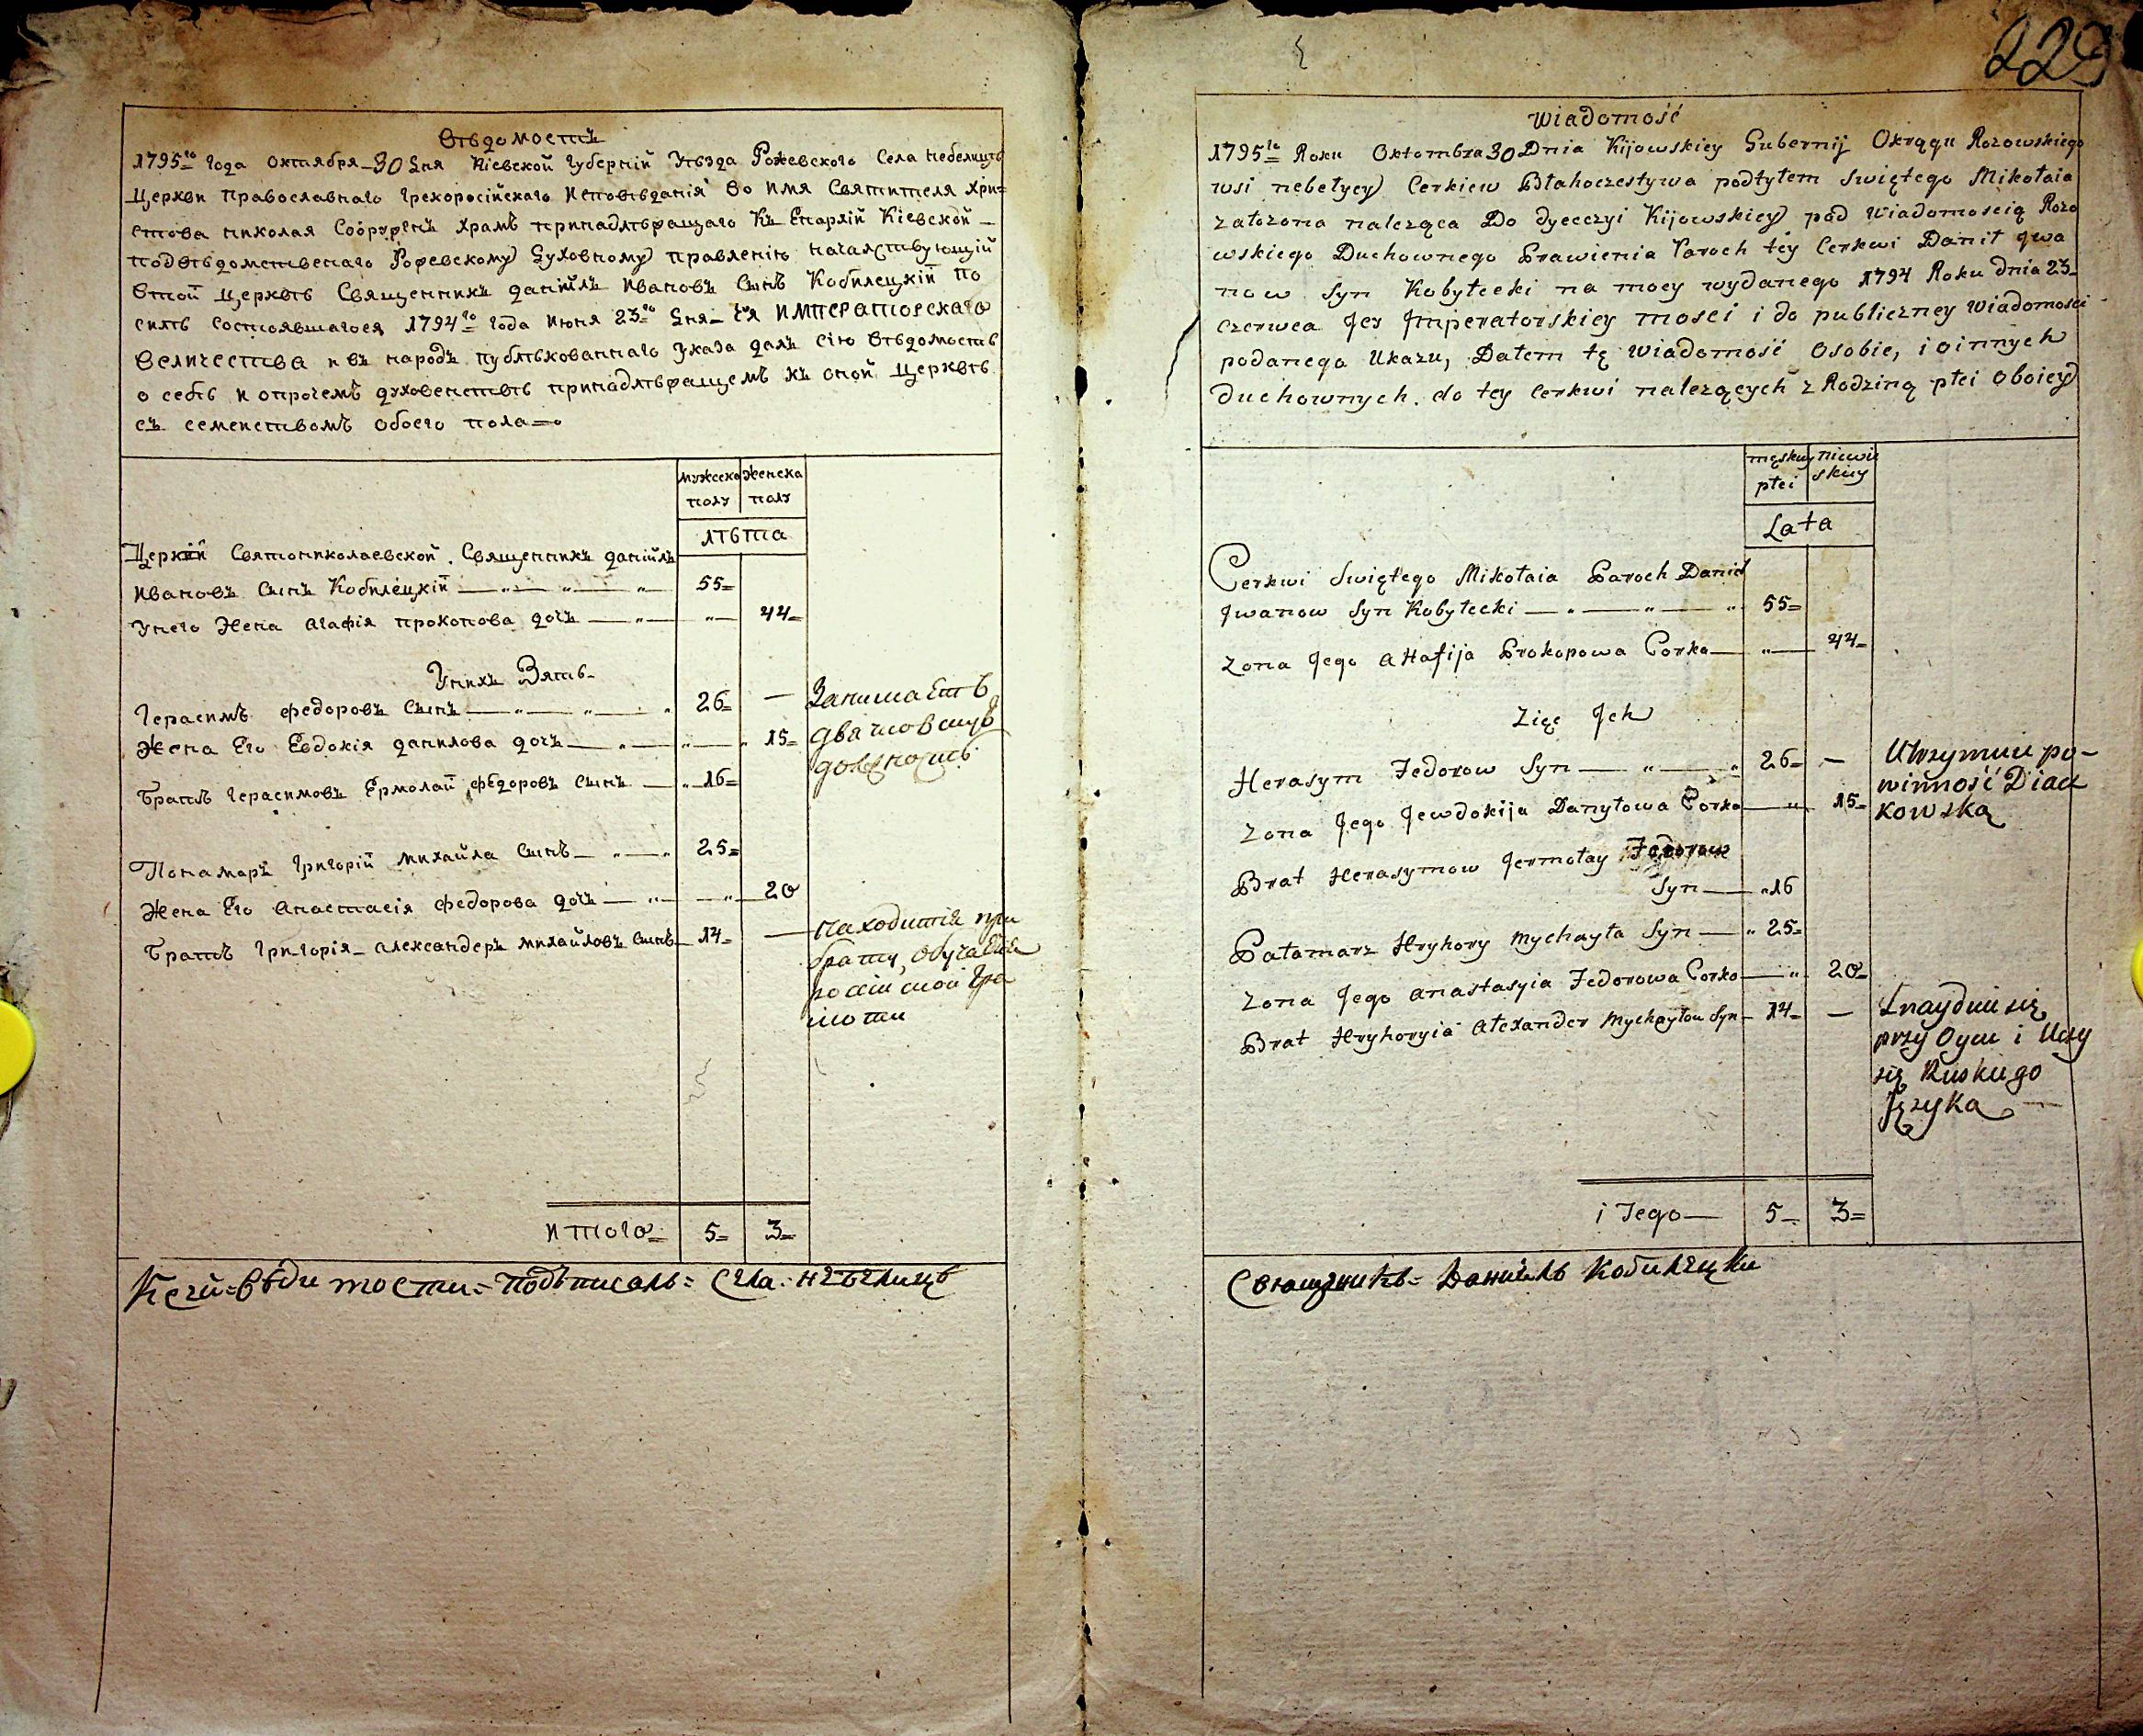 Вѣдомостъ
1795го года октября 30 дня Кіевской губерній уѣзда Рожевского Села небелицѣ
Церкви православнаго грекоросійскаго исповѣданія во имя Святителя Хри=
стова николая Сооруженъ храмъ принадлѣжащаго Къ Епархій Кіевской
подвѣдомственаго Рожевскому духовному правленію началствующій
втой Церквѣ Священникъ данйилъ ивановъ Сынъ Кобилецкій по
силѣ состоявшагося 1794го года июня 23го дня Ея ИМПЕРаторскаго
величества и въ народъ публѣкованнаго указа далъ сію вѣдомость
о себѣ и опрочемъ духовенствѣ принадлѣжащемъ къ оной Церквѣ
съ семейством обоего пола
мужеска женска
полу полу
лѣта
Церкій Святониколаевской Священникъ данійлъ
ивановъ Сынъ Кобилецкій 55
Унего жена агафія прокопова дочъ 44
Унихъ Зять
Герасимъ федоровъ Сынъ 26 — Занимаетъ
жена Его Евдокія данилова дочъ 15
должность
братъ Герасимовъ Ермолай федоровъ Сынъ 16
Пономаръ григорій михайла Сынъ 25
жена Его анастасія федорова дочъ 20
братъ григорія александеръ михайловъ Сынъ 14 — находится при
брату, обучается
россійской гра
моти
итого 5 3
Ксей вѣдимости подъписалъ Села небелицѣ
229
Wiadomość
1795го Roku Oktombra 30 Dnia Kijowskiey Gubernij Okręgu Rozowskiego
wsi nebełycy Cerkiew Błahoczestywa podtytem Swiętego Mikołaia
załozona naleząca Do dyecczyi Kijowskiey pod wiadomoscią Rozo
wskiego Duchownego Prawienia Paroch tey Cerkwi Danił Jwa
now Syn Kobyłecki na mocy wydanego 1794 Roku dnia 23
czerwca Jey Jmperatorskiey mosci i do publiczney wiadomosci
podanego Ukazu, Datem tę wiadomość Osobie, i oinnych
duchownych do tey Cerkwi nalezących z Rodziną płci oboiey
męskiey niewie
płci skiey
Lata
Cerkwi Swiętego Mikołaia Paroch Danił
Jwanow Syn Kobyłecki 55
Zona Jego aHafija Prokopowa Corka 44
Zięc Jch
Herasym Fedorow Syn 26 — Utrzymuie po-
winność Diad
kowską
Zona Jego Jewdokija Danyłowa Corka 15
Brat Herasymow Jermołay Fedorow
Syn 16
Pałamarz Hryhory Mychayła Syn 25
Zona Jego anastasyia Fedorowa Corka 20
Brat Hryhoryia alexander Mychayłow Syn 14 — Znayduie się
przy Oycu i Uczy
się Ruskiego
Języka
i Jego 5 3
Священикъ Данйилъ Кобилецки